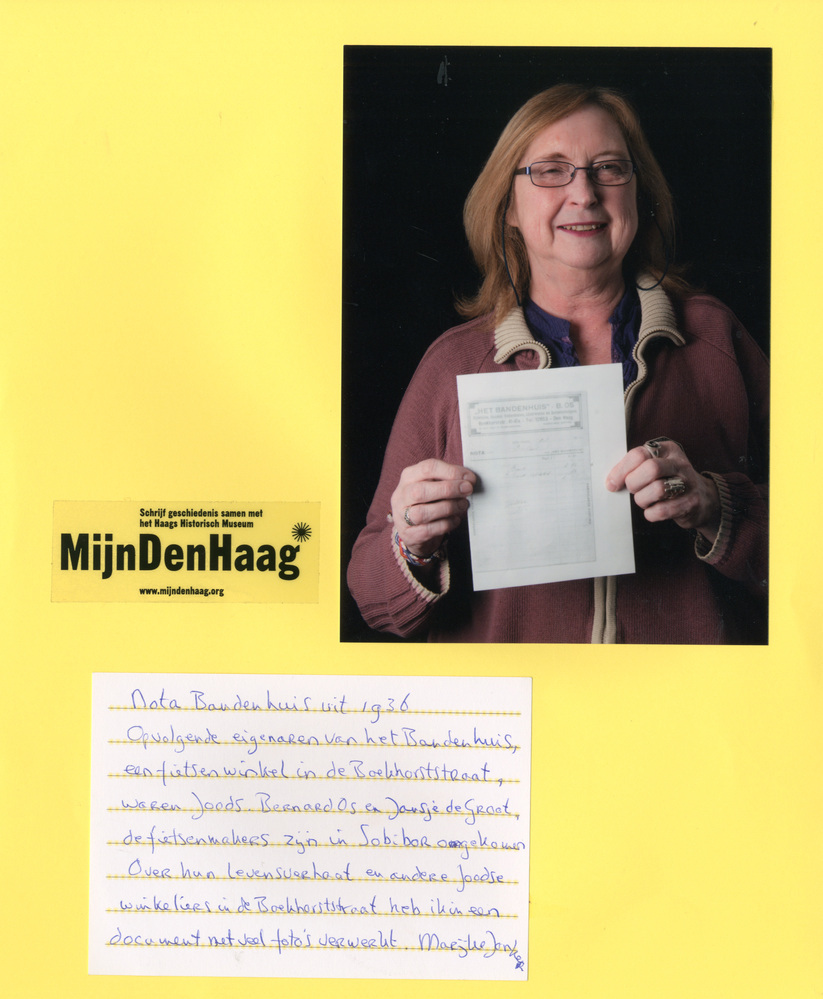 "HET BANDENHUIS" - B. OS
NOTA
Schrijf geschiedenis samen met
het Haags Historisch Museum
MijnDenHaag
www.mijndenhaag.org
Nota Bandenhuis uit 1936
Opvolgende eigenaren van het Bandenhuis,
een fietsenwinkel in de Boekhorststraat,
waren Joods. Bernard Os en Jansje de Groot,
de fietsenmakers zijn in Sobibor omgekomen
Over hun levensverhaal en andere Joodse
winkeliers in de Boekhorststraat heb ik in een
document met veel foto's verwerkt. Marijke Jonker